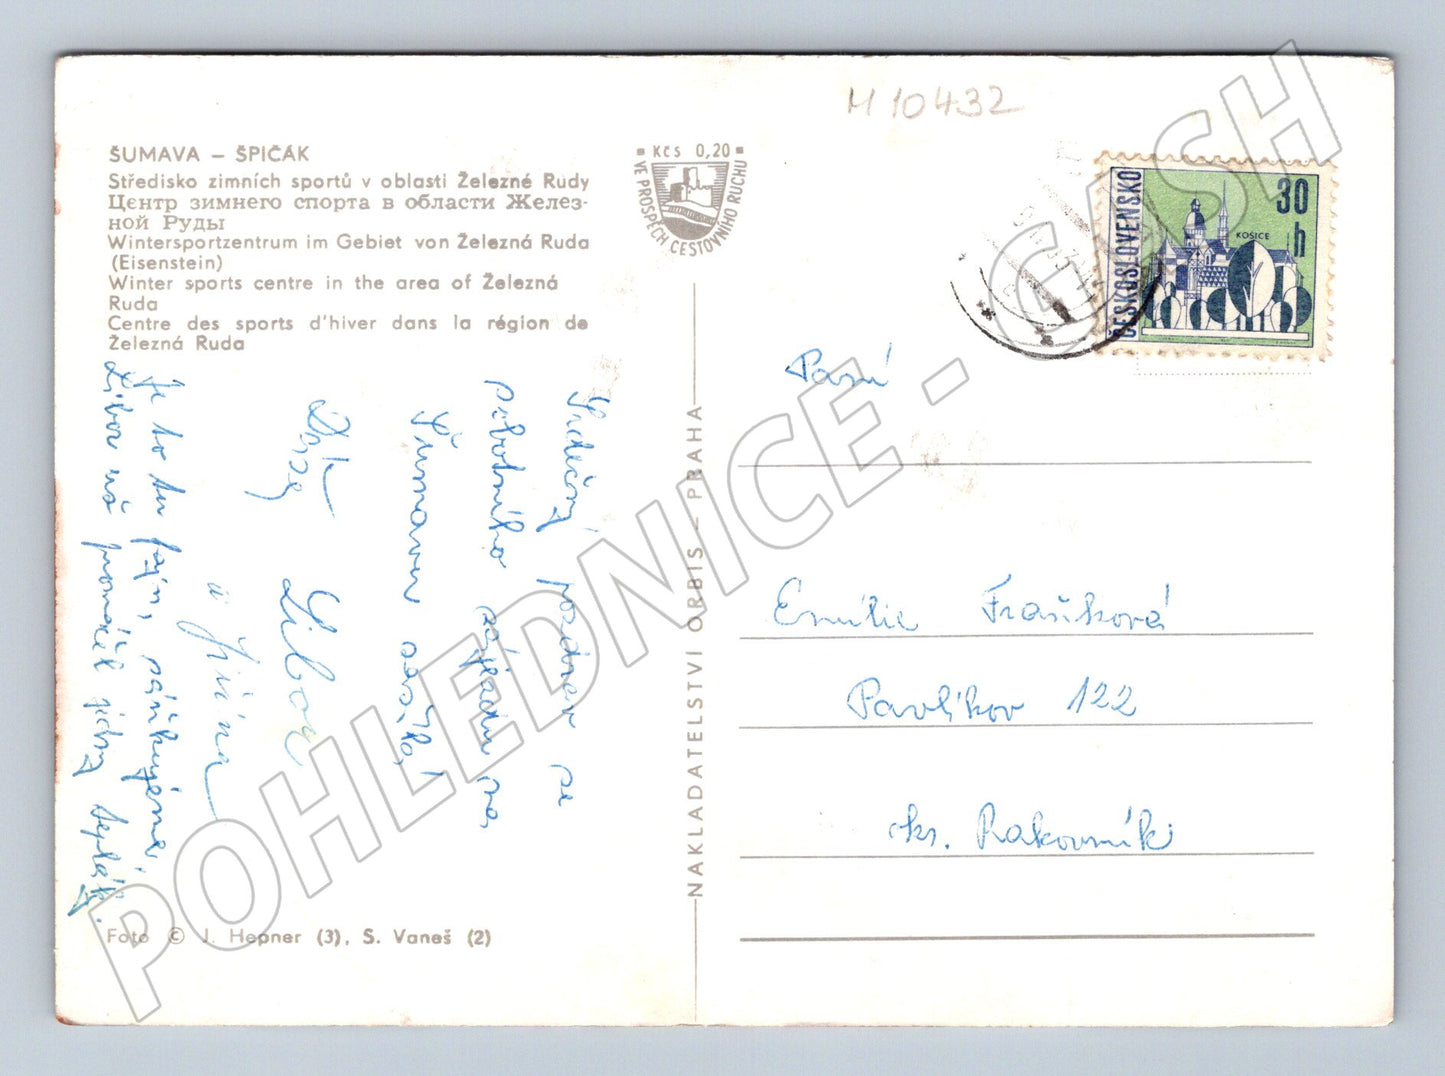 M 10432
ŠUMAVA – ŠPIČÁK
Středisko zimních sportů v oblasti Železné Rudy
Центр зимнего спорта в области Желез-
ной Руды
Wintersportzentrum im Gebiet von Železná Ruda
(Eisenstein)
Winter sports centre in the area of Železná
Ruda
Centre des sports d'hiver dans la région de
Železná Ruda
Kčs 0,20
VE PROSPĚCH CESTOVNÍHO RUCHU
ČESKOSLOVENSKO
30 h
KOŠICE
Srdečný pozdrav se
sobotního zájezdu na
Šumavu zasílá
Libor
a Jiřina
Je to tu fajn,
Libor už promáčel jedny tepláky.
NAKLADATELSTVÍ ORBIS – PRAHA
Paní
Emílie Fraňková
Pavlíkov 122
ks. Rakovník
Foto © J. Hepner (3), S. Vaneš (2)
POHLEDNICE - CASH